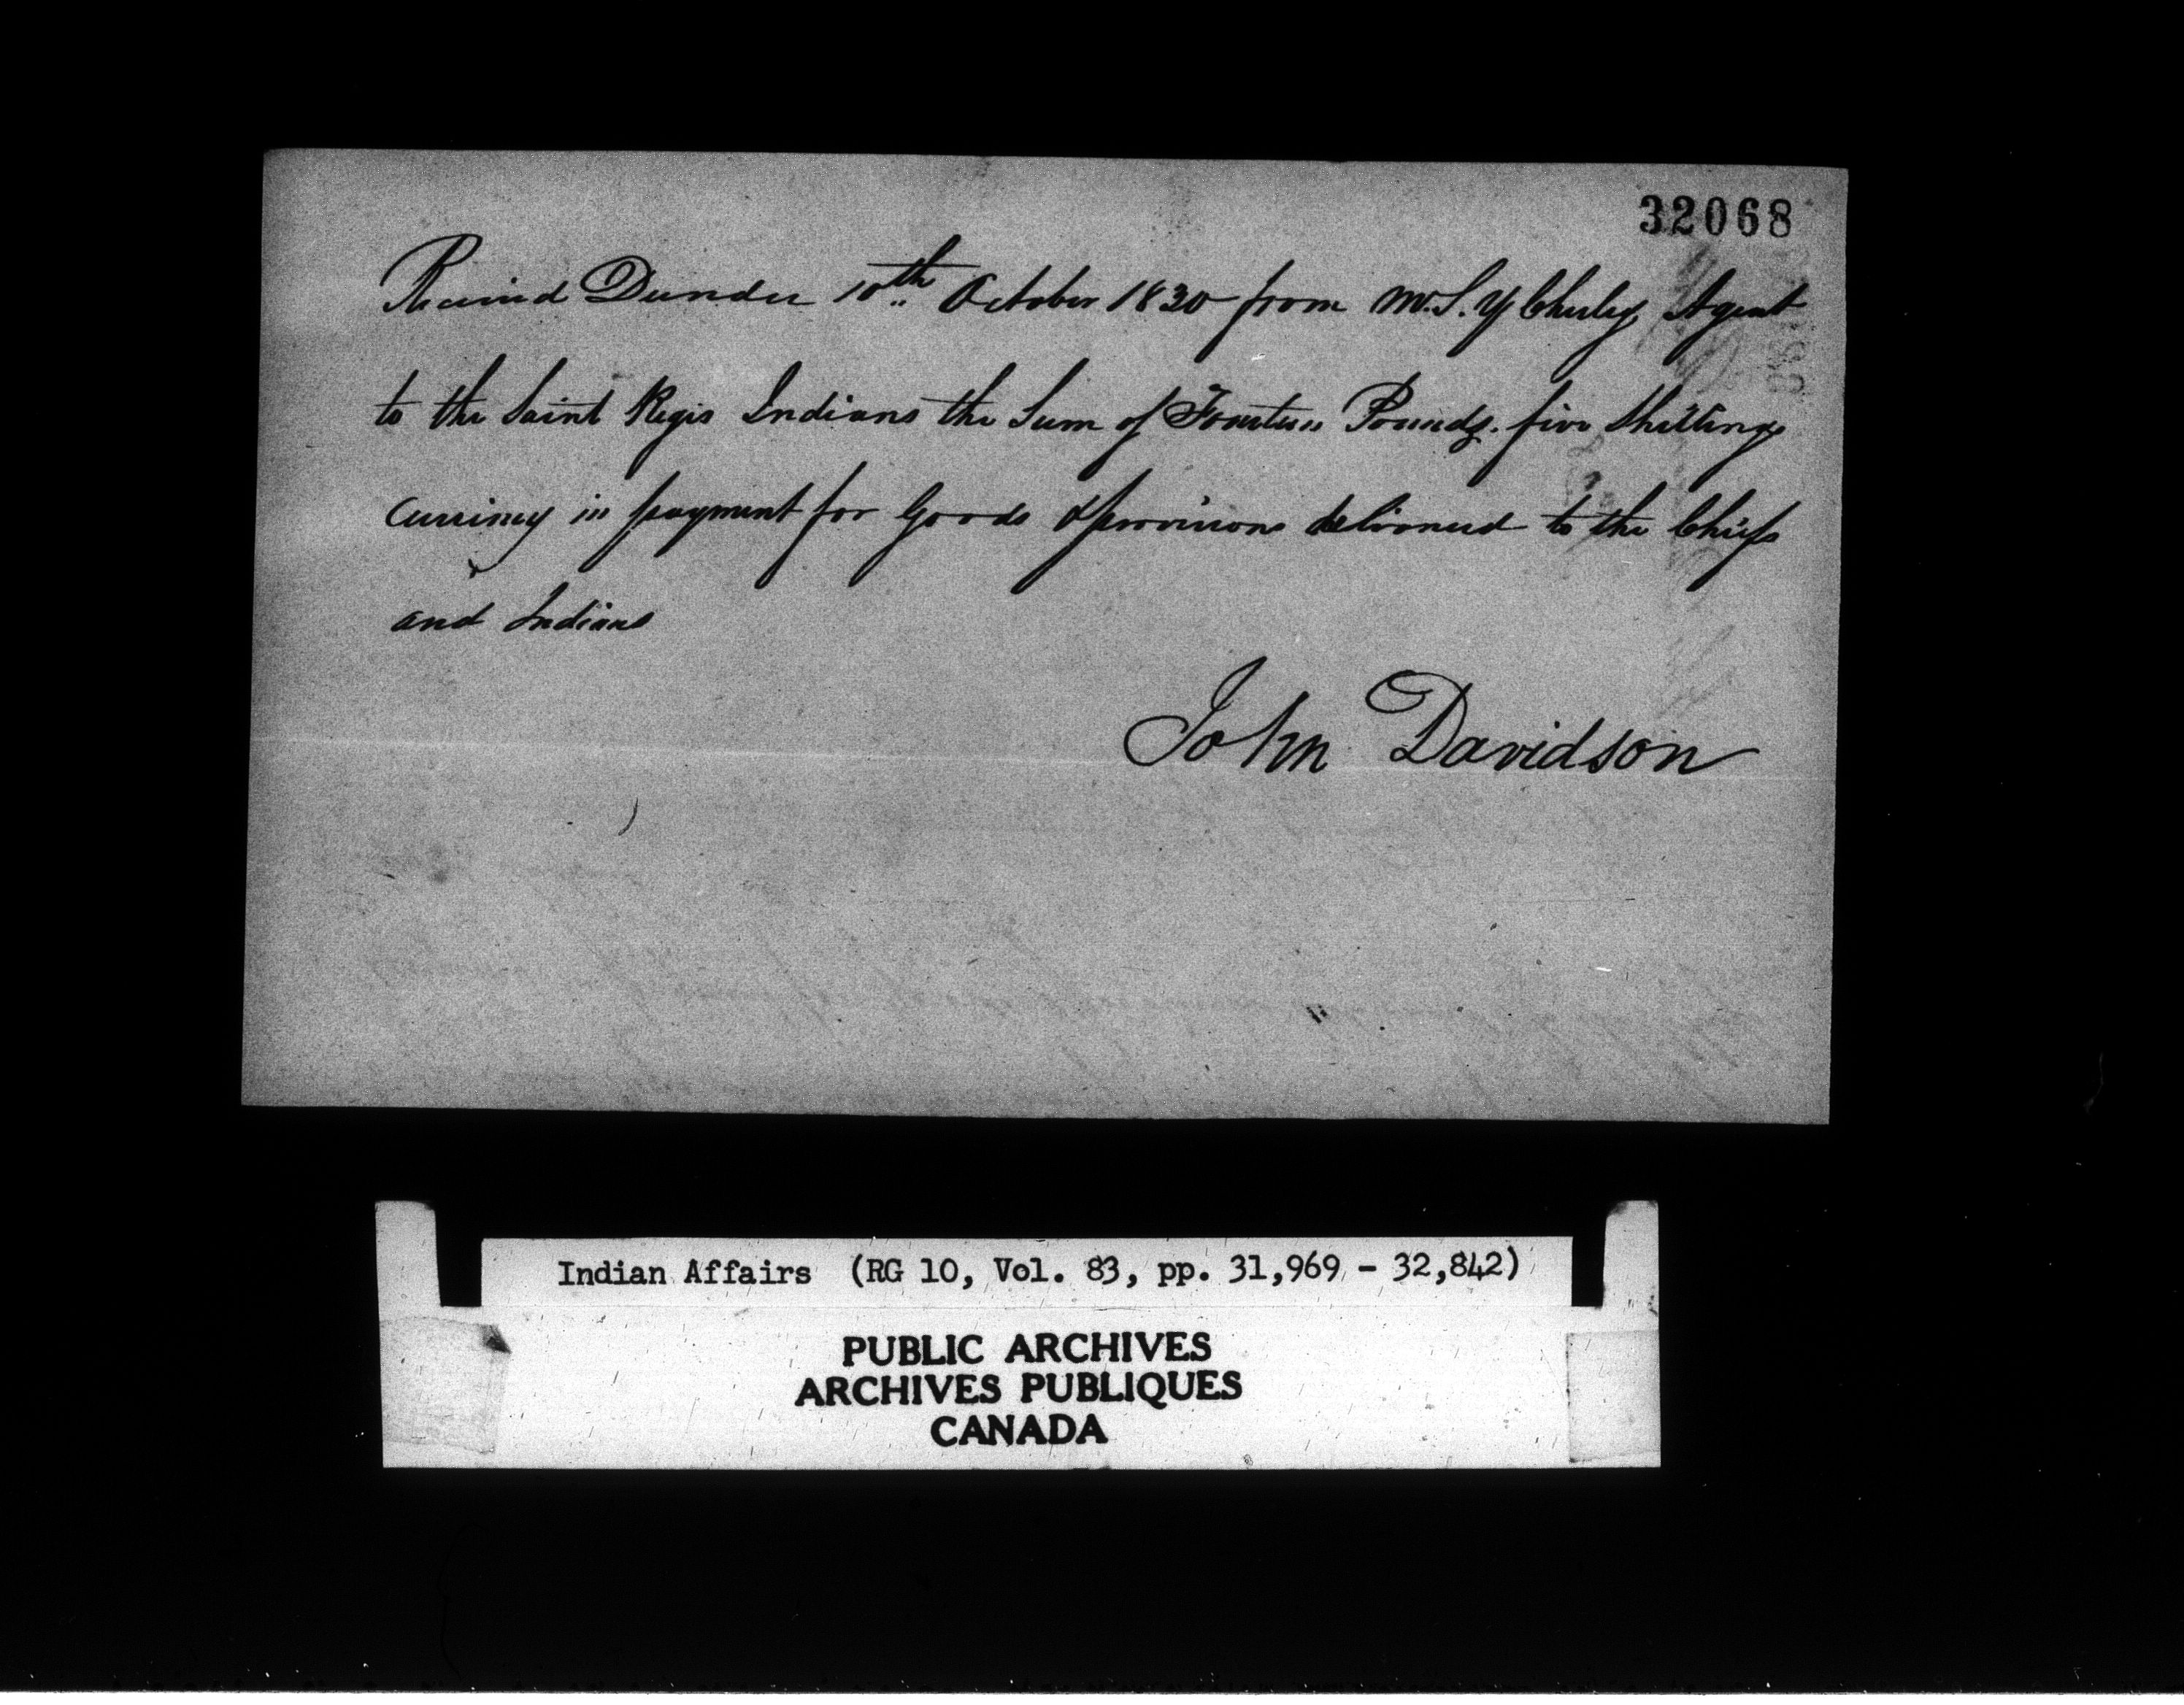 32068
Received Dundee 10th October 1830 from M. S. Y Chesley Agent
to the Saint Regis Indians the Sum of Fourteen Pounds. five Shillings
Currency in payment for Goods & provisions delivered to the Chiefs
and Indians
John Davidson
Indian Affairs (RG 10, Vol. 83, pp. 31,969 - 32,842)
PUBLIC ARCHIVES
ARCHIVES PUBLIQUES
CANADA